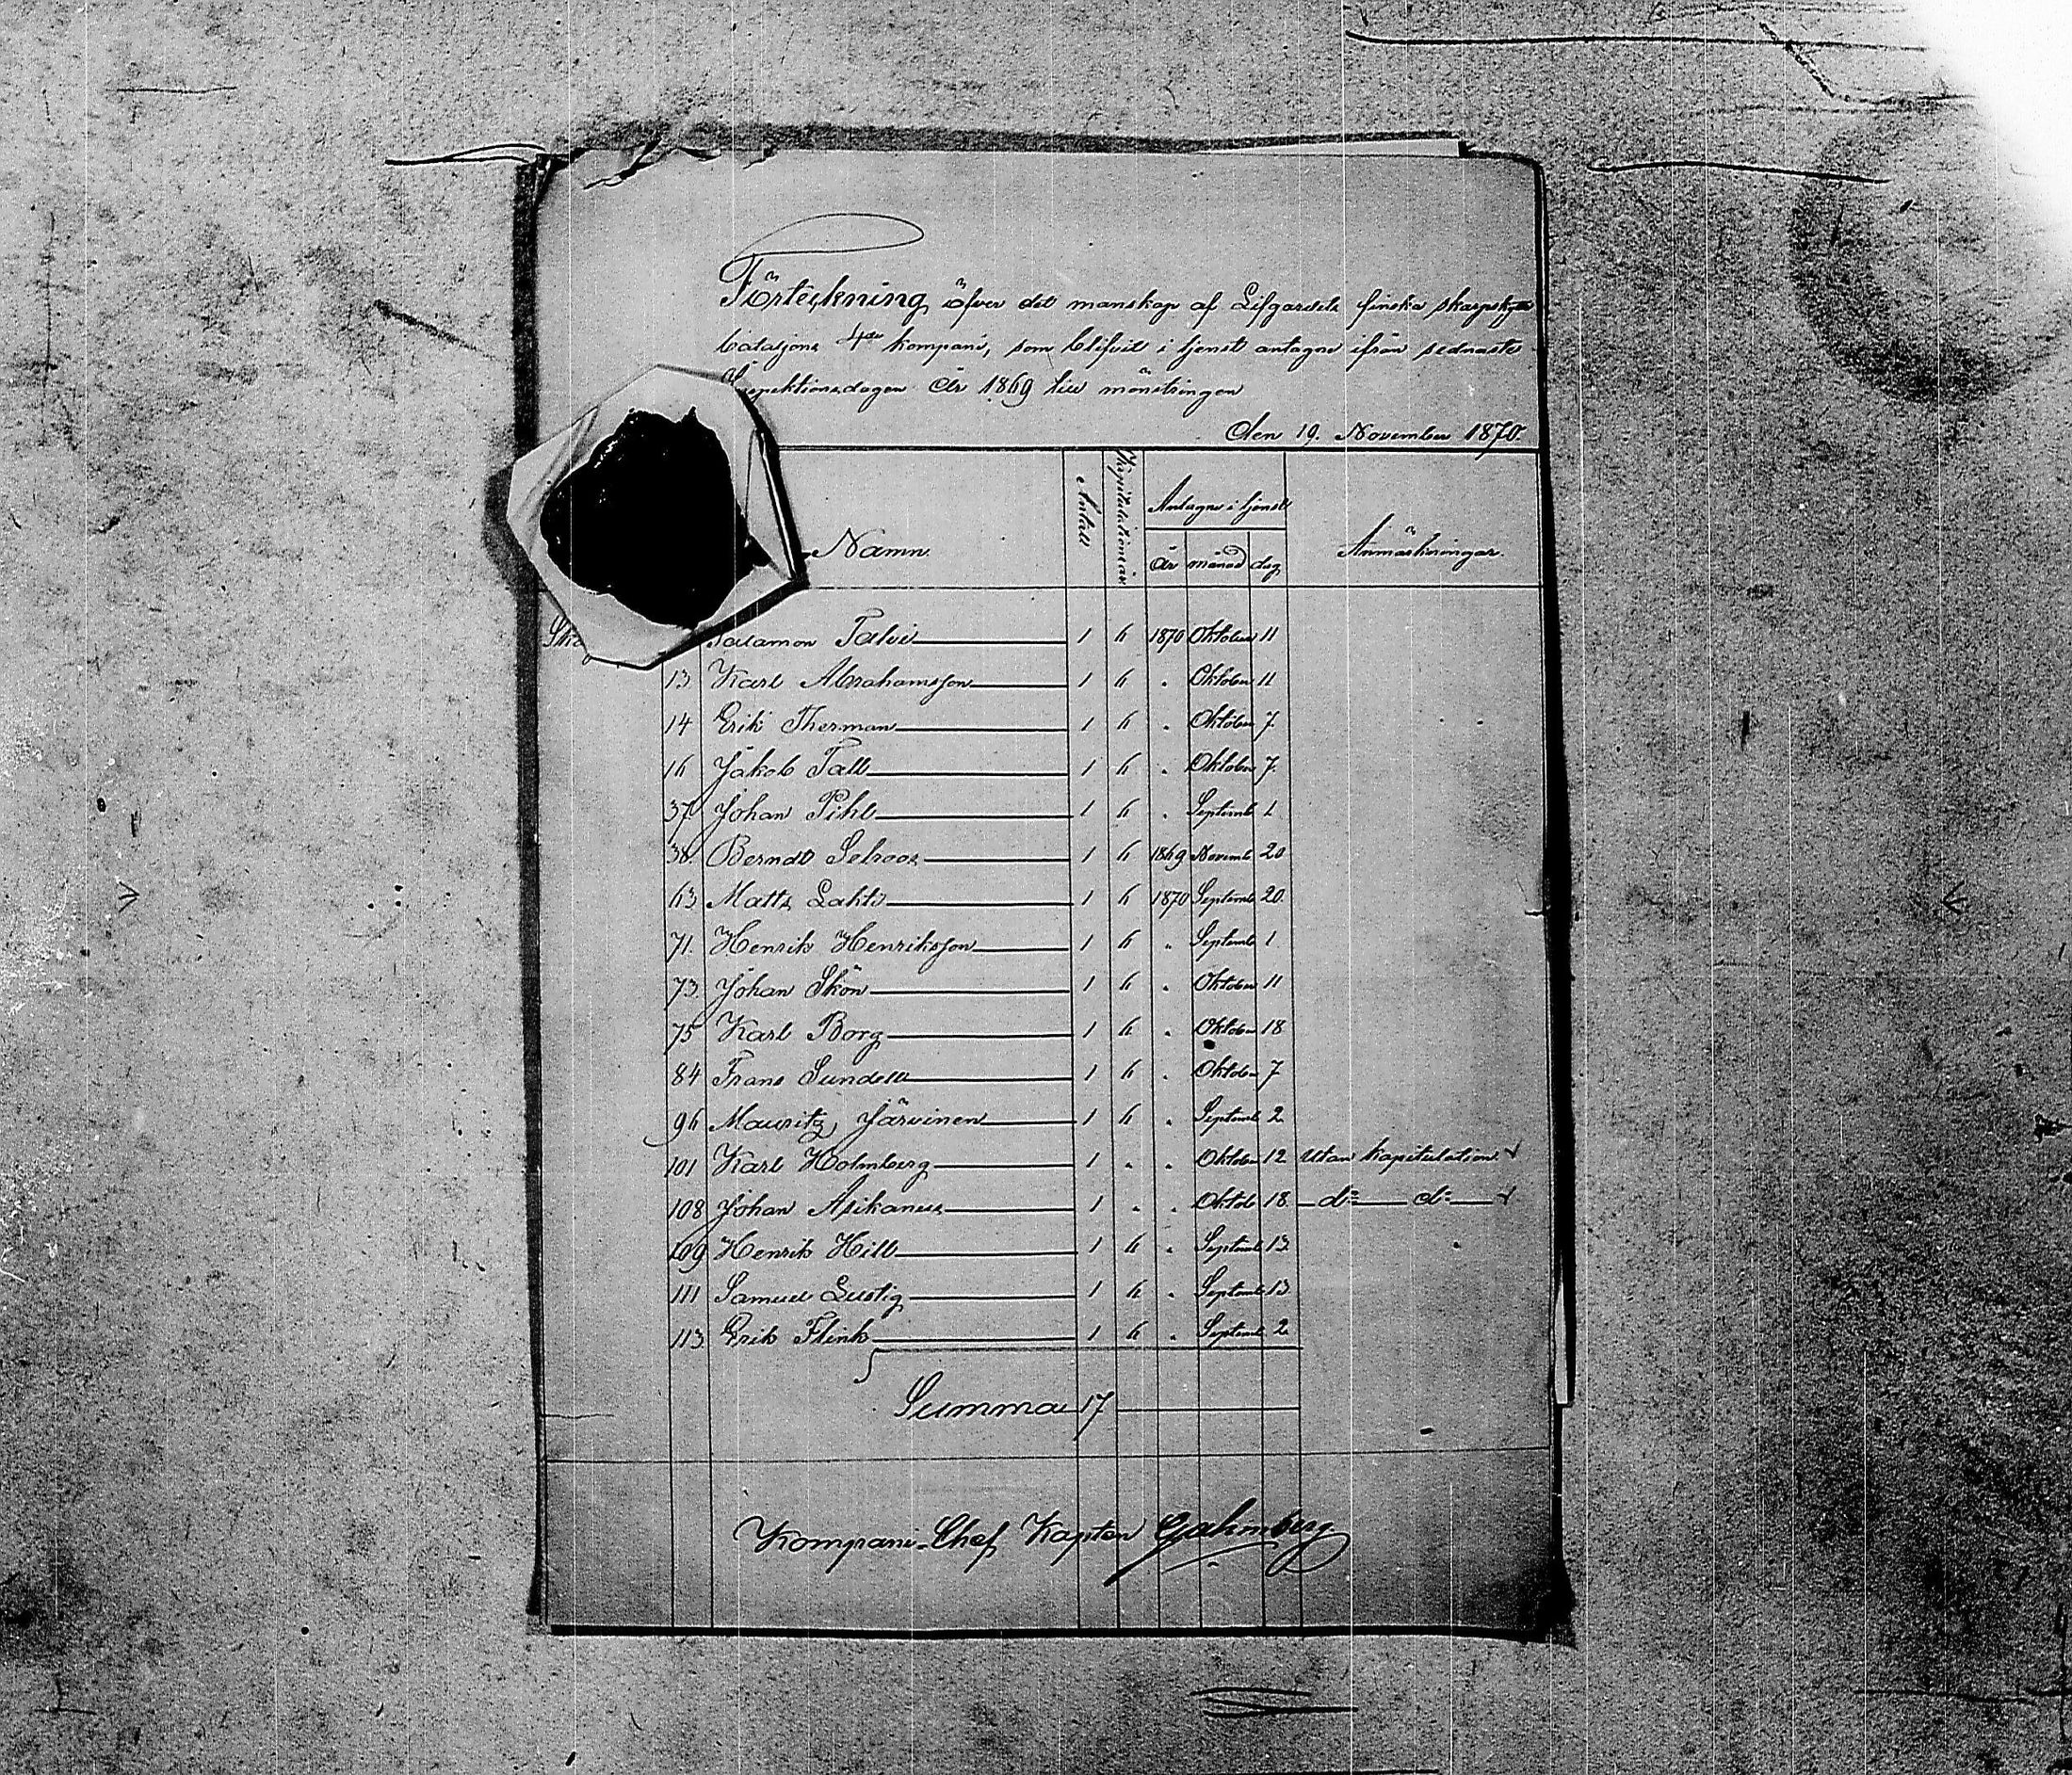 Förteckning öfver det manskap af Lifgardets finska skarpskytte
bataljons 4de kompani, som blifvit i tjenst antagne ifrån sednaste
Inspektionsdagen År 1869 till mönstringen
den 19. November 1870.
Namn. Antall Kapitulationsår Antagne i tjenst År månad dag Anmärkningar.
Salamon Talvi 1 6 1870 Oktober 11
13 Karl Abrahamsson 1 6 " Oktober 11
14 Erik Therman 1 6 " Oktober 7.
16 Jakob Tall 1 6 " Oktober 7.
37 Johan Pihl 1 6 " Septemb 1.
38. Berndt Selroos 1 6 1869 Novemb 20
63 Matts Lahti 1 6 1870 Septemb 20.
71. Henrik Henriksson 1 6 " Septemb 1.
73. Johan Skön 1 6 " Oktober 11
75 Karl Borg 1 6 " Oktober 18
84 Frans Sundell 1 6 " Oktober 7
96 Mauritz Järvinen 1 6 " Septemb 2
101 Karl Holmberg 1 " " Oktober 12 utan kapitulation
108 Johan Asikanus 1 " " Oktob 18. d:o d:o
109 Henrik Hill 1 6 " Septemb 13
111 Samuel Lustig 1 6 " Septemb 13
113 Erik Flink 1 6 " Septemb 2
Summa 17
Kompani-Chef, Kapten Gahmberg